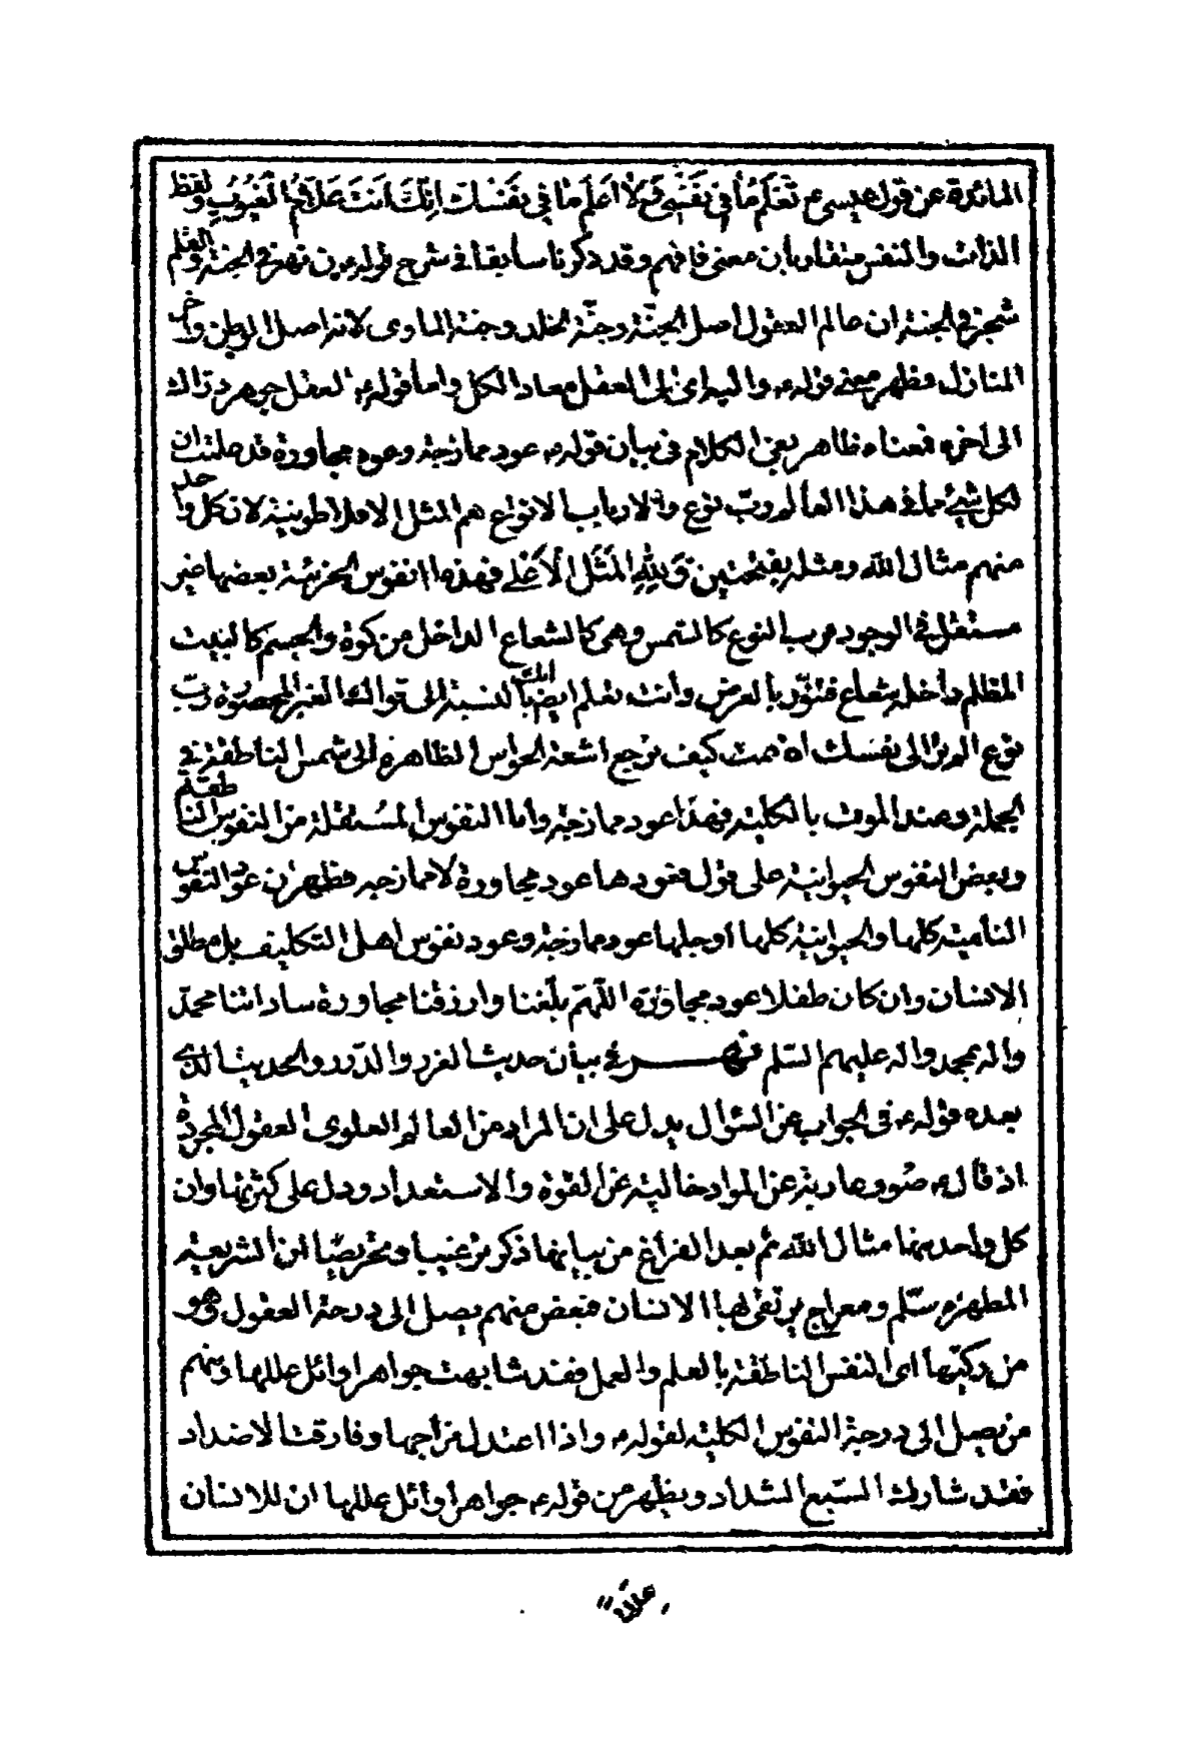 المائدة عن قول عيسى ع تَعْلَمُ مَا فِي نَفْسِي وَلَا أَعْلَمُ مَا فِي نَفْسِكَ اِنَّكَ اَنْتَ عَلَّامُ الْغُيُوبِ ولفظ
الذات والنفس متقاربان معنى فافهم وقد ذكرنا سابقا في شرح قوله ن نهر في الجنة والقلم
شجر في الجنة ان عالم العقول اصل الجنّة وجنّة الخلد وجنة الماوى لانه اصل الوطن واخر
المنازل فظهر معنى قوله ع واليه اى الى العقل معاد الكل واما قوله ع العقل جوهر دراك
الى اخره فمعناه ظاهر بقى الكلام في بيان قوله ع عود ممازجة وعود مجاورة قد علمت ان
لكل شيئ مما في هذا العالم ربّ نوع والارباب الانواع هم المثل الافلاطونية لان كل واحد
منهم مثال الله ومثله بفتحتين وَلِلّٰهِ الْمَثَلُ الْأَعْلٰى فهذه النفوس الجزئية بعضها غير
مستقل في الوجود فرب النوع كالشمس وهى كالشعاع الداخل من كوة والجسم كالبيت
المظلم داخله شعاع فتنوّر بالعرض وانت تعلم ايضا انك بالنسبة الى قواك الغير المحصورة ربّ
نوع الم تر الى نفسك اذ نمت كيف ترجع اشعة الحواس الظاهرة الى شمس الناطقة في
الجملة وعند الموت بالكلية فهذا عود ممازجة واما النفوس المستقلة من النفوس الناطقة
وبعض النفوس الحيوانية على قول فعودها عود مجاورة لا ممازجة فظهر ان عود النفوس
النامية كلها والحيوانية كلها او جلها عود ممازجة وعود نفوس اهل التكليف بل مطلق
الانسان وان كان طفلا عود مجاورة اللّهم بلّغنا وارزقنا مجاورة ساداتنا محمّد
واله بمجد واله عليهم السّلم نهر في بيان حديث الغرر والدّرر والحديث الذي
بعده قوله ع في الجواب عن السّؤال يدل على ان المراد من العالم العلوى العقول المجردة
اذ قال ع صُوَر عارية عن المواد خالية عن القوة والاستعداد ودل على كثرتها وان
كل واحد منها مثال الله ثم بعد الفراغ من بيانها ذكر ترغيبا وتحريصا ان الشريعة
المطهرة سلّم ومعراج يرتقى بها الانسان فبعض منهم يصل الى درجة العقول وهو
من زكيّها اى النفس الناطقة بالعلم والعمل فقد شابهت جواهر اوائل عللها ومنهم
من يصل الى درجة النفوس الكلية لقوله ع واذا اعتدل مزاجها وفارقت الاضداد
فقد شارك السّبع الشداد ويظهر من قوله ع جواهر اوائل عللها ان للانسان